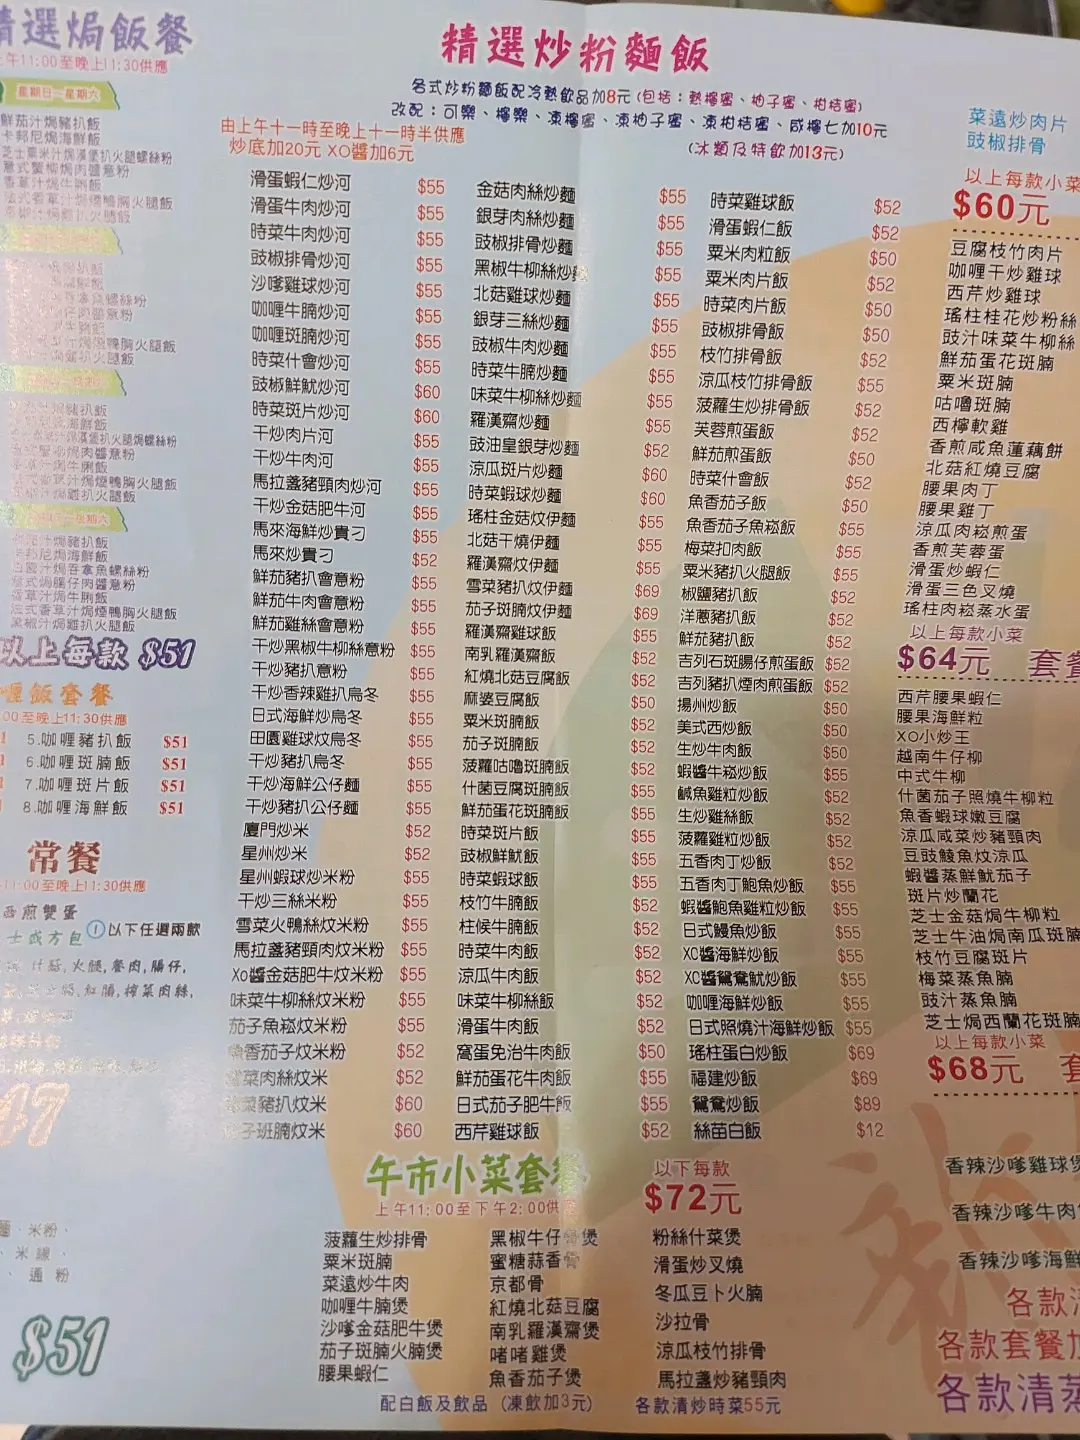 精選焗飯餐
上午11:00至晚上11:30供應
星期日-星期六
鮮茄汁焗豬扒飯
卡邦尼焗海鮮飯
芝士粟米汁焗漢堡扒火腿螺絲粉
意式蟹柳焗肉醬意粉
香草汁焗牛脷飯
白汁焗吞拿魚螺絲粉
香草汁焗牛脷飯
法式香草汁焗煙鴨胸火腿飯
黑椒汁焗雞扒火腿飯
以上每款 $51
咖喱飯套餐
11:00至晚上11:30供應
5.咖喱豬扒飯 $51
6.咖喱斑腩飯 $51
7.咖喱斑片飯 $51
8.咖喱海鮮飯 $51
常餐
11:00至晚上11:30供應
西煎雙蛋
①以下任選兩款
火腿,餐肉,腸仔,
47
米粉、
米線、
通粉
$51
精選炒粉麵飯
各式炒粉麵飯配冷熱飲品加8元(包括:熱檸蜜、柚子蜜、柑桔蜜)
改配:可樂、檸樂、凍檸蜜、凍柚子蜜、凍柑桔蜜、咸檸七加10元
(冰類及特飲加13元)
由上午十一時至晚上十一時半供應
炒底加20元 XO醬加6元
滑蛋蝦仁炒河 $55
滑蛋牛肉炒河 $55
時菜牛肉炒河 $55
豉椒排骨炒河 $55
沙嗲雞球炒河 $55
咖喱牛腩炒河 $55
咖喱斑腩炒河 $55
時菜什會炒河 $55
豉椒鮮魷炒河 $60
時菜斑片炒河 $60
干炒肉片河 $55
干炒牛肉河 $55
馬拉盞豬頸肉炒河 $55
干炒金菇肥牛河 $55
馬來海鮮炒貴刁 $55
馬來炒貴刁 $52
鮮茄豬扒會意粉 $55
鮮茄牛肉會意粉 $55
鮮茄雞絲會意粉 $55
干炒黑椒牛柳絲意粉 $55
干炒豬扒意粉 $55
干炒香辣雞扒烏冬 $55
日式海鮮炒烏冬 $55
田園雞球炆烏冬 $55
干炒豬扒烏冬 $55
干炒海鮮公仔麵 $55
干炒豬扒公仔麵 $55
廈門炒米 $52
星州炒米 $52
星州蝦球炒米粉 $55
干炒三絲米粉 $55
雪菜火鴨絲炆米粉 $55
馬拉盞豬頸肉炆米粉 $55
Xo醬金菇肥牛炆米粉 $55
味菜牛柳絲炆米粉 $55
茄子魚崧炆米粉 $55
魚香茄子炆米粉 $52
菜肉絲炆米 $52
菜豬扒炆米 $60
子班腩炆米 $60
金菇肉絲炒麵 $55
銀芽肉絲炒麵 $55
豉椒排骨炒麵 $55
黑椒牛柳絲炒麵 $55
北菇雞球炒麵 $55
銀芽三絲炒麵 $55
豉椒牛肉炒麵 $55
時菜牛腩炒麵 $55
味菜牛柳絲炒麵 $55
羅漢齋炒麵 $55
豉油皇銀芽炒麵 $52
涼瓜斑片炒麵 $60
時菜蝦球炒麵 $60
瑤柱金菇炆伊麵 $55
北菇干燒伊麵 $55
羅漢齋炆伊麵 $55
雪菜豬扒炆伊麵 $69
茄子斑腩炆伊麵 $69
羅漢齋雞球飯 $55
南乳羅漢齋飯 $52
紅燒北菇豆腐飯 $52
麻婆豆腐飯 $50
粟米斑腩飯 $52
茄子斑腩飯 $52
菠蘿咕嚕斑腩飯 $52
什菌豆腐斑腩飯 $52
鮮茄蛋花斑腩飯 $52
時菜斑片飯 $55
豉椒鮮魷飯 $55
時菜蝦球飯 $55
枝竹牛腩飯 $52
柱候牛腩飯 $52
時菜牛肉飯 $52
涼瓜牛肉飯 $52
味菜牛柳絲飯 $52
滑蛋牛肉飯 $52
窩蛋免治牛肉飯 $50
鮮茄蛋花牛肉飯 $55
日式茄子肥牛飯 $55
西芹雞球飯 $52
時菜雞球飯 $52
滑蛋蝦仁飯 $52
粟米肉粒飯 $50
粟米肉片飯 $52
時菜肉片飯 $50
豉椒排骨飯 $50
枝竹排骨飯 $52
涼瓜枝竹排骨飯 $55
菠蘿生炒排骨飯 $52
芙蓉煎蛋飯 $52
鮮茄煎蛋飯 $50
時菜什會飯 $52
魚香茄子飯 $50
魚香茄子魚崧飯 $55
梅菜扣肉飯 $55
粟米豬扒火腿飯 $55
椒鹽豬扒飯 $52
洋蔥豬扒飯 $52
鮮茄豬扒飯 $52
吉列石斑腸仔煎蛋飯 $52
吉列豬扒煙肉煎蛋飯 $52
揚州炒飯 $50
美式西炒飯 $50
生炒牛肉飯 $50
蝦醬牛崧炒飯 $55
鹹魚雞粒炒飯 $52
生炒雞絲飯 $52
菠蘿雞粒炒飯 $52
五香肉丁炒飯 $52
五香肉丁鮑魚炒飯 $55
蝦醬鮑魚雞粒炒飯 $55
日式鰻魚炒飯 $55
XC醬海鮮炒飯 $55
XC醬鴛鴦魷炒飯 $55
咖喱海鮮炒飯 $55
日式照燒汁海鮮炒飯 $55
瑤柱蛋白炒飯 $69
福建炒飯 $69
鴛鴦炒飯 $89
絲苗白飯 $12
菜遠炒肉片
豉椒排骨
以上每款小菜
$60元
豆腐枝竹肉片
咖喱干炒雞球
西芹炒雞球
瑤柱桂花炒粉絲
豉汁味菜牛柳絲
鮮茄蛋花斑腩
粟米斑腩
咕嚕斑腩
西檸軟雞
香煎咸魚蓮藕餅
北菇紅燒豆腐
腰果肉丁
腰果雞丁
涼瓜肉崧煎蛋
香煎芙蓉蛋
滑蛋炒蝦仁
滑蛋三色叉燒
瑤柱肉崧蒸水蛋
以上每款小菜
$64元 套餐
西芹腰果蝦仁
腰果海鮮粒
XO小炒王
越南牛仔柳
中式牛柳
什菌茄子照燒牛柳粒
魚香蝦球嫩豆腐
涼瓜咸菜炒豬頸肉
豆豉鯪魚炆涼瓜
蝦醬蒸鮮魷茄子
斑片炒蘭花
芝士金菇焗牛柳粒
芝士牛油焗南瓜斑腩
枝竹豆腐斑片
梅菜蒸魚腩
豉汁蒸魚腩
芝士焗西蘭花斑腩
以上每款小菜
$68元 套
香辣沙嗲雞球煲
香辣沙嗲牛肉
香辣沙嗲海鮮
各款
各款套餐加
各款清蒸
午市小菜套餐
上午11:00至下午2:00供
菠蘿生炒排骨
粟米斑腩
菜遠炒牛肉
咖喱牛腩煲
沙嗲金菇肥牛煲
茄子斑腩火腩煲
腰果蝦仁
黑椒牛仔骨煲
蜜糖蒜香骨
京都骨
紅燒北菇豆腐
南乳羅漢齋煲
啫啫雞煲
魚香茄子煲
配白飯及飲品 (凍飲加3元)
以下每款
$72元
粉絲什菜煲
滑蛋炒叉燒
冬瓜豆卜火腩
沙拉骨
涼瓜枝竹排骨
馬拉盞炒豬頸肉
各款清炒時菜55元